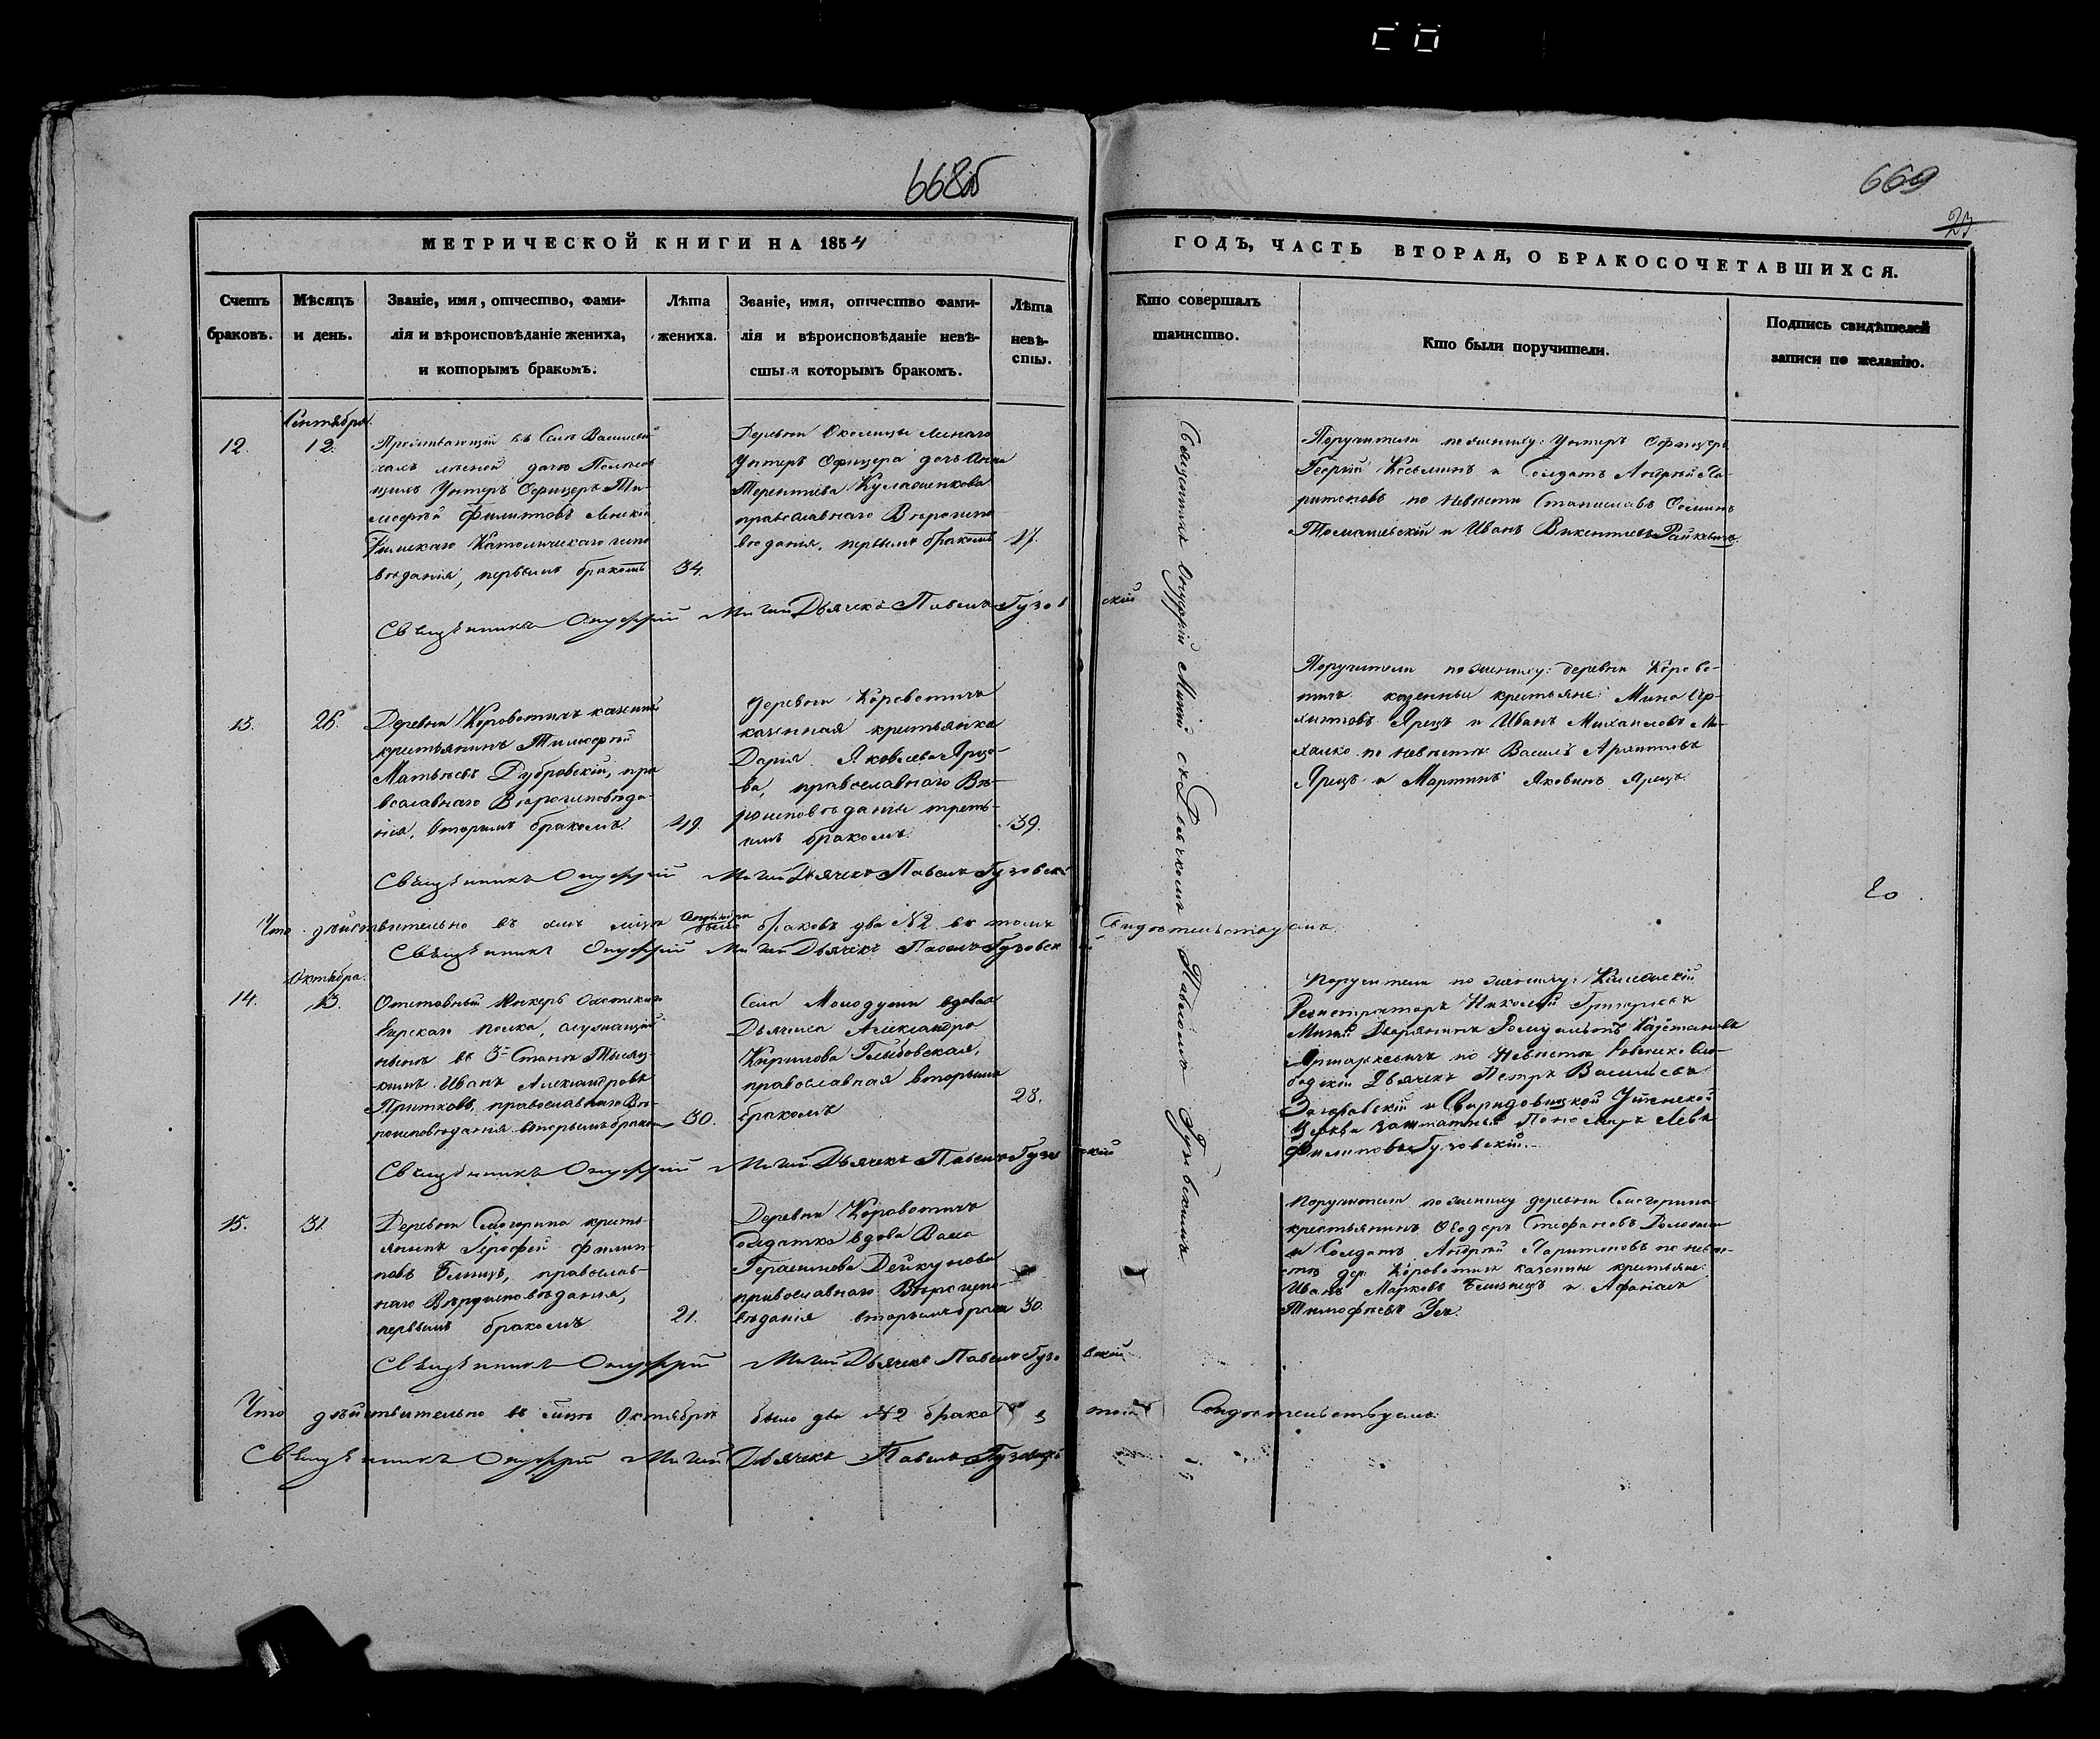 668об
669
23
МЕТРИЧЕСКОЙ КНИГИ НА 1854
ГОДЪ, ЧАСТЬ ВТОРАЯ, О БРАКОСОЧЕТАВШИХСЯ.
Счетъ браковъ.
Мѣсяцъ и день.
Званіе, имя, отчество, фами-
лія и вѣроисповѣданіе жениха,
и которымъ бракомъ.
Лѣта жениха.
Званіе, имя, отчество фами-
лія и вѣроисповѣданіе невѣ-
сты и которымъ бракомъ.
Лѣта невѣ-
сты.
Кто совершалъ
таинство.
Кто были поручители.
Подпись свидѣтелей
записи по желанію.
Сентября
12.
12.
Проживающій въ Селѣ
Унтеръ Офицеръ Ти-
мофей Филиповъ
Римскаго Католическаго испо
вѣданія, первымъ бракомъ
34.
Деревни
Унтеръ Офицера дочь Анна
Терентіева
православнаго Вѣроиспо
вѣданія, первымъ бракомъ
17.
Поручители по жениху: Унтеръ Офицеръ
Георгій Косьминъ и Солдатъ Андрей Ха-
ритоновъ по невѣсти Станиславъ
Томашевскій и Иванъ Викентіевъ Райкевичъ.
Священникъ Онуфрій Мигай Дьячекъ Павелъ Гузовскій
13.
26.
Деревни Коровотичъ казенный
крестьянинъ Тимофей
Матвѣевъ Дубровскій, пра
вославнаго Вѣроисповѣда-
нія, вторымъ бракомъ.
49.
Деревни Коровотичъ
казенная крестьянка
Дарія Яковлева Ярец-
ва, православнаго Вѣ-
роисповѣданія треть-
имъ бракомъ.
39.
Поручители по жениху: деревни Корово-
тичъ казенные крестьяне: Мина Ар-
хиповъ Ярецъ и Иванъ Михаиловъ Ми-
халко по невѣстѣ Василь Архиповъ
Ярецъ и Мартинъ Яковинъ Ярецъ.
Священникъ Онуфрій Мигай Дьячекъ Павелъ Гузовскі
Что дѣйствительно въ семъ мцѣ Сентябрѣ было браковъ два №2 въ томъ Свидѣтельствуемъ.
Священникъ Онуфрій Мигай Дьячекъ Павелъ Гузовск
20
Октября.
14.
13.
Отставный Юнкеръ Охотскаго
Егерскаго полка, служащій
нынѣ въ 3 Станѣ
Иванъ Александровъ
Притковъ, православнаго Вѣ-
роисповѣданія вторымъ бракомъ
30.
Села Молодуши вдова
Дьячиха Александра
Кирилова Глыбовская,
православная вторымъ
бракомъ
28.
Поручители по жениху: Колежскій
Регистраторъ Николай Григорьевъ
Мигай Дворянинъ Ромуальдъ
по невѣстѣ
Дьячекъ Петръ Васильевъ
и
заштатный Пономарь Левъ
Филиповъ Гузовскій.
Священникъ Онуфрій Мигай Дьячекъ Павелъ Гузовскій
15.
31.
Деревни Смогорина кресть-
янинъ Ерофей Филип-
повъ православ-
наго Вѣроисповѣданія,
первымъ бракомъ
21.
Деревни Коровотичъ
Солдатка вдова Васса
Герасимова Дейкунова
православнаго Вѣроиспо-
вѣданія вторымъ браком
30
Поручители по жениху деревни Смогорина
крестьянинъ Ѳеодоръ Стефановъ
и Солдатъ Андрей Харитоновъ по невѣ-
стѣ дер. Коровотичъ казенные крестьяне:
Иванъ Марковъ и Афанасъ
Тимофѣевъ
Священникъ Онуфрій Мигай Дьячекъ Павелъ Гузовскій
Что дѣйствительно въ мцѣ Октябрѣ было два №2 брака въ томъ Свидѣтельствуемъ.
Священникъ Онуфрій Мигай Дьячекъ Павелъ Гузовскі
Священникъ Онуфрій Мигай съ Дьячкомъ Павломъ Гузовскимъ